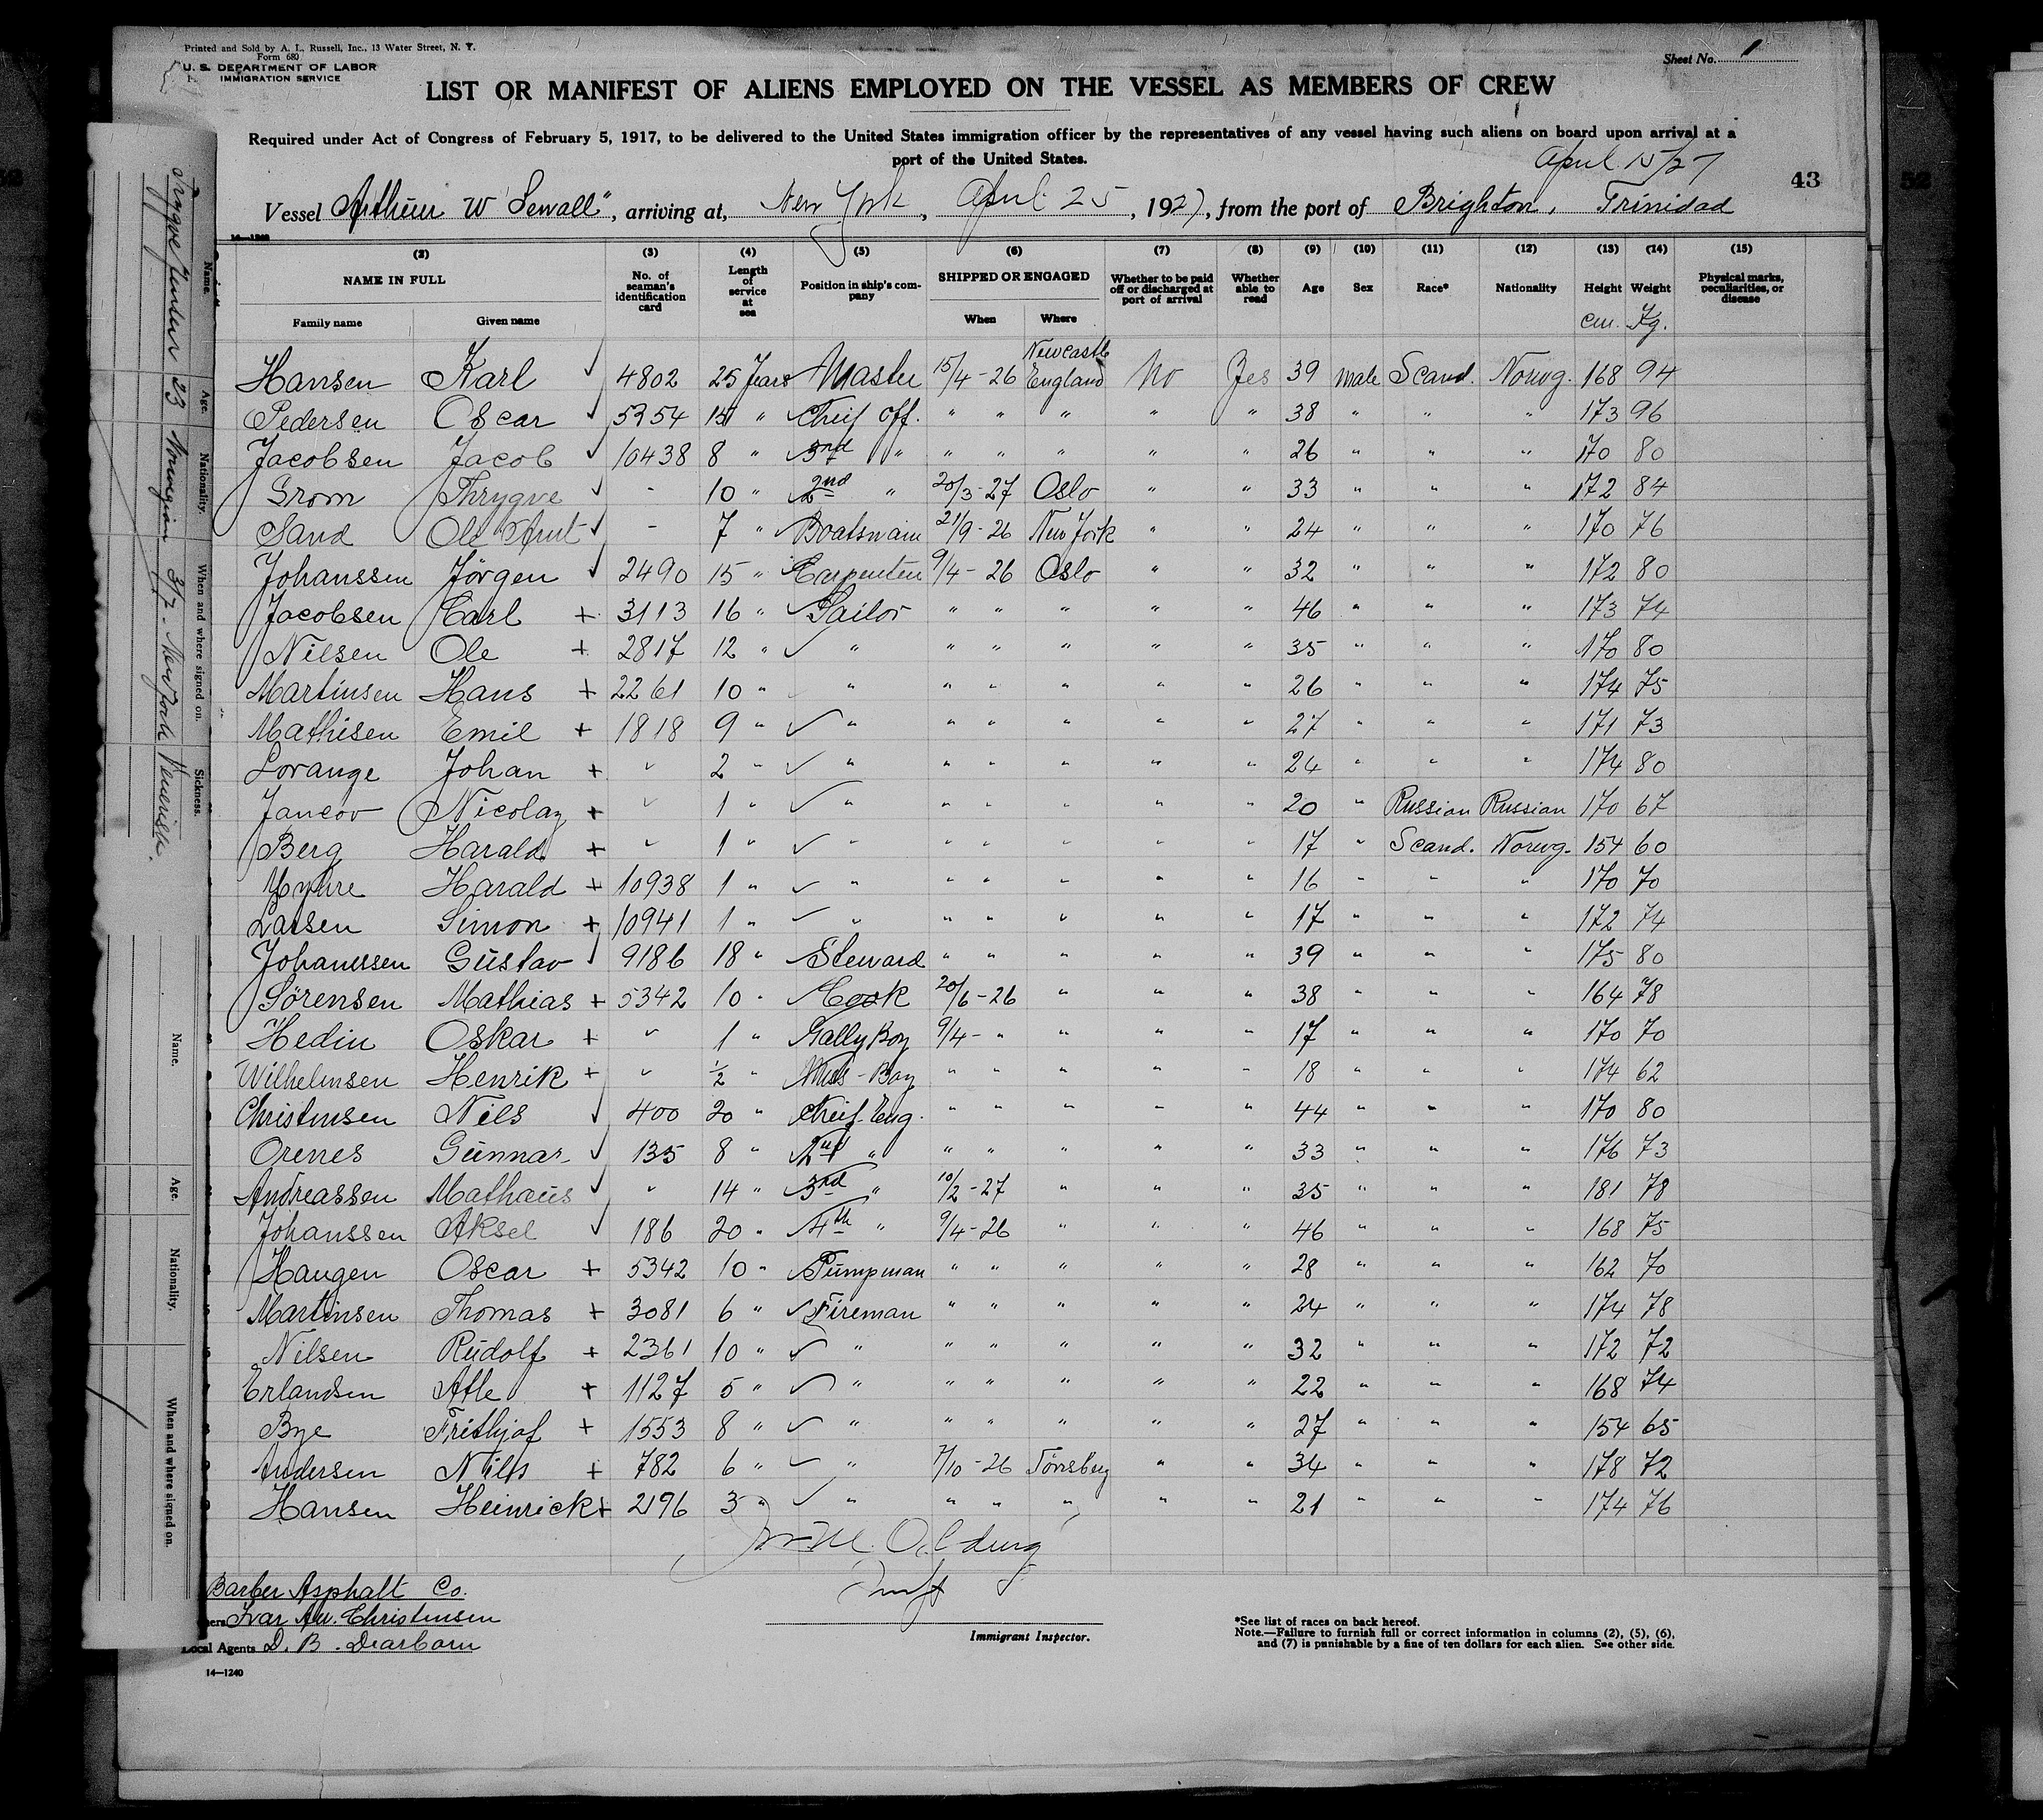 Printed and Sold by A. L. Russell, Inc., 13 Water Street, N. Y.
Form 680
U. S. DEPARTMENT OF LABOR
IMMIGRATION SERVICE
Sheet No. 1
LIST OR MANIFEST OF ALIENS EMPLOYED ON THE VESSEL AS MEMBERS OF CREW
Required under Act of Congress of February 5, 1917, to be delivered to the United States immigration officer by the representatives of any vessel having such aliens on board upon arrival at a
port of the United States.
April 15/27
43
Vessel Arthur W Sewall", arriving at, New York, April 25, 1927, from the port of Brighton, Trinidad
14—1240
(2) (3) (4) (5) (6) (7) (8) (9) (10) (11) (12) (13) (14) (15)
NAME IN FULL Family name Given name
No. of seaman's identification card
Length of service at sea
Position in ship's company
SHIPPED OR ENGAGED When Where
Whether to be paid off or discharged at port of arrival
Whether able to read
Age Sex Race* Nationality Height Weight
Physical marks, peculiarities, or disease
cm. Kg.
Hansen Karl √ 4802 25 Years Master 15/4-26 Newcastle England No Yes 39 Male Scand. Norwg. 168 94
Pedersen Oscar √ 5354 15 " Cheif Off. " " " " " 38 " " " 173 96
Jacobsen Jacob √ 10438 8 " 3rd " " " " " " 26 " " " 170 80
Grom Thrygve √ - 10 " 2nd " 20/3-27 Oslo " " 33 " " " 172 84
Sand Ole √ - 7 " Boatswain 21/9-26 New York " " 24 " " " 170 76
Johanssen Jörgen √ 2490 15 " Carpenter 9/4-26 Oslo " " 32 " " " 172 80
Jacobsen Carl + 3113 16 " Sailor " " " " " 46 " " " 173 74
Nilsen Ole + 2817 12 " √ " " " " " " 35 " " " 170 80
Martinsen Hans + 2261 10 " " " " " " " 26 " " " 174 75
Mathisen Emil + 1818 9 " √ " " " " " " 27 " " " 171 73
Lorange Johan + √ 2 " √ " " " " " " 24 " " " 174 80
Jancov Nicolay + √ 1 " √ " " " " " " 20 " Russian Russian 170 67
Berg Harald + √ 1 " √ " " " " " " 17 " Scand. Norwg. 154 60
Myhre Harald + 10938 1 " √ " " " " " " 16 " " " 170 70
Larsen Simon + 10941 1 " √ " " " " " " 17 " " " 172 74
Johanssen Gustav √ 9186 18 " Steward " " " " " 39 " " " 175 80
Sörensen Mathias + 5342 10 " Cook 20/6-26 " " " 38 " " " 164 78
Hedin Oskar + √ 1 " Gally Boy 9/4- " " " " 17 " " " 170 70
Wilhelmsen Henrik + √ 1/2 " Mess-Boy " " " " " 18 " " " 174 62
Christensen Nils √ 400 20 " Cheif-Eng. " " " " " 44 " " " 170 80
Orenes Gunnar √ 135 8 " 2nd " " " " " " 33 " " " 176 73
Andreassen Mathæus √ √ 14 " 3rd " 10/2-27 " " " 35 " " " 181 78
Johanssen Aksel √ 186 20 " 4th " 9/4-26 " " " 46 " " " 168 75
Haugen Oscar + 5342 10 " Pumpman " " " " " 28 " " " 162 70
Martinsen Thomas + 3081 6 " √ Fireman " " " " " 24 " " " 174 78
Nilsen Rudolf + 2361 10 " √ " " " " " " 32 " " " 172 72
Erlandsen Atle + 1127 5 " √ " " " " " " 22 " " " 168 74
Bye Frithjof + 1553 8 " √ " " " " " " 27 " " " 154 65
Andersen Nils + 782 6 " √ " 7/10-26 Tönsberg " " 34 " " " 178 72
Hansen Heinrick + 2196 3 " √ " " " " " " 21 " " " 174 76
Barber Asphalt Co.
Ivar An. Christensen
Local Agents D. B. Dearborn
Immigrant Inspector.
*See list of races on back hereof.
Note.—Failure to furnish full or correct information in columns (2), (5), (6),
and (7) is punishable by a fine of ten dollars for each alien. See other side.
14—1240
Name. Age. Nationality. When and where signed on. Sickness.
Trygve 23 Norwegian 3/7 - New York Venerisk.
Name. Age. Nationality. When and where signed on.
52